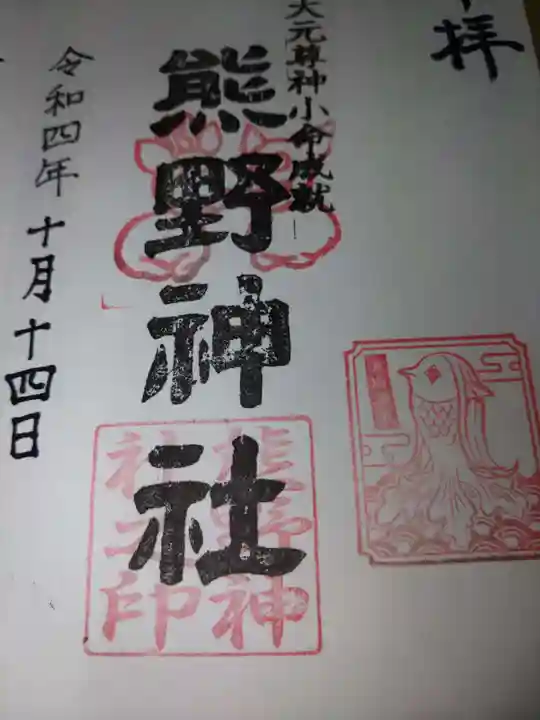 奉拝
大元尊神小命成就
熊野神社
熊野神
社之印
令和四年十月十四日